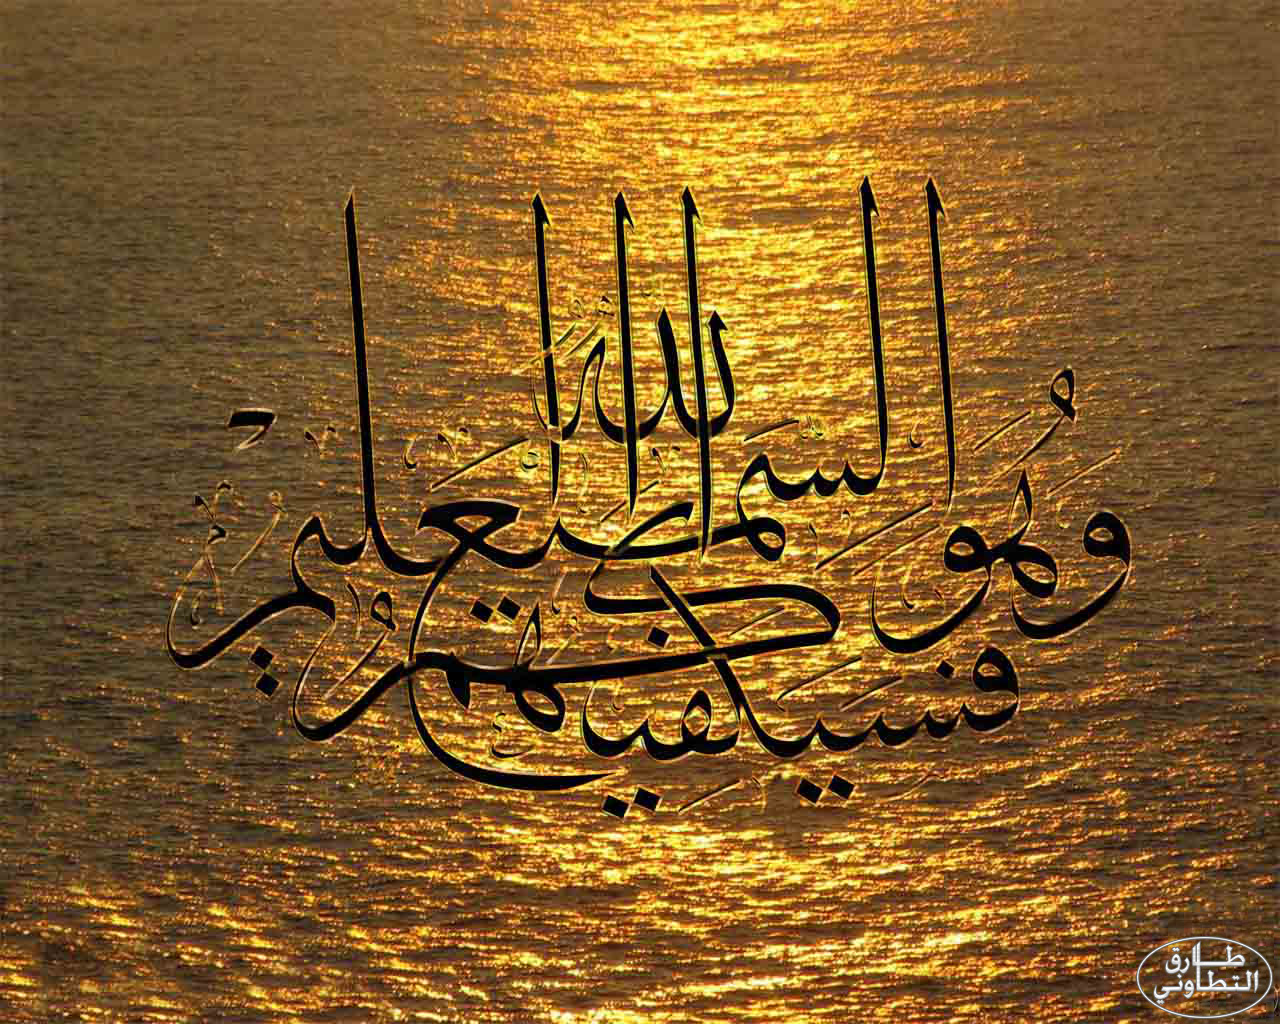 فسيكفيكهم الله
وهو السميع العليم
طارق
التطاوني